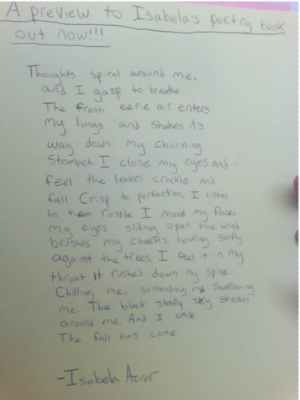 A preview to Isabela's poetry book
out now!!!
Thoughts spiral around me,
and I gasp to breathe.
The fresh eerie air enters
my lungs and shakes its
way down my churning
Stomach. I close my eyes and
feel the leaves crackle and
fall. Crisp to perfection, I listen
to them rustle. I move my face,
my eyes sliding open the wind
brushes my cheeks, howling softly
against the trees. I feel it in my
throat It rushes down my spine
Chilling me, surrounding me swallowing
me. The black starry sky
around me. And I smile
The fall has come.
-Isabela